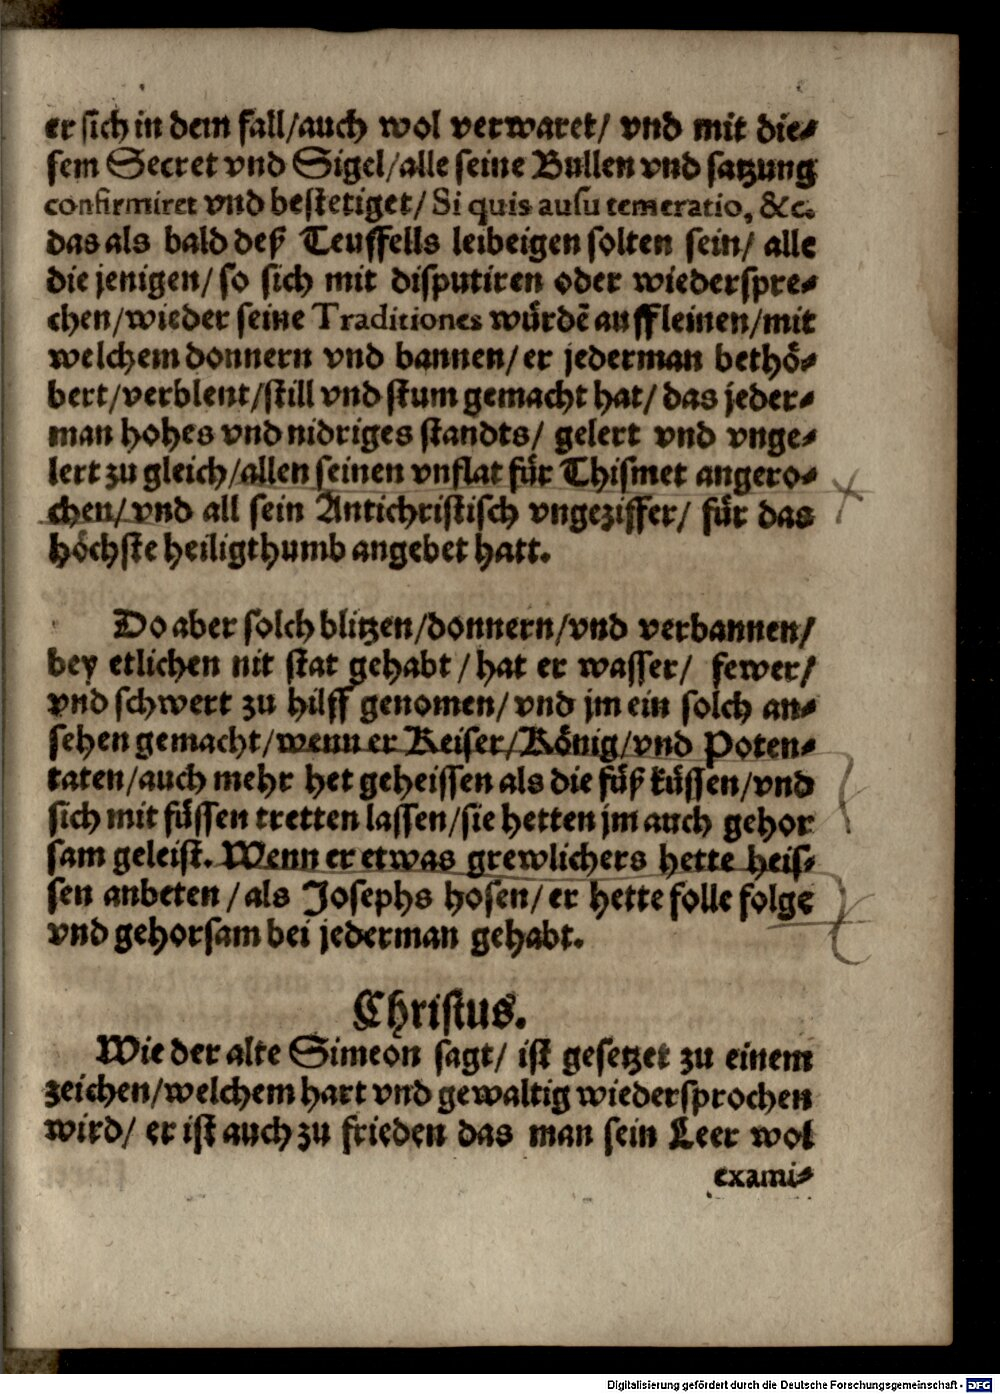 er sich in dem fall/auch wol verwaret/ vnd mit die⸗
sem Secret vnd Sigel/alle seine Bullen vnd satzung
confirmiret vnd bestetiget/ Si quis ausu temeratio, &c.
das als bald deß Teuffells leibeigen solten sein/ alle
die jenigen/ so sich mit disputiren oder wiederspre⸗
chen/wieder seine Traditiones wuͤrdē auffleinen/mit
welchem donnern vnd bannen/ er jederman bethoͤ⸗
bert/verblent/still vnd stum gemacht hat/ das jeder⸗
man hohes vnd nidriges standts/ gelert vnd vnge⸗
lert zu gleich/allen seinen vnflat fuͤr Thismet angero⸗
chen/ vnd all sein Antichristisch vngeziffer/ fuͤr das
hoͤchste heiligthumb angebet hatt.
Do aber solch blitzen/donnern/vnd verbannen/
bey etlichen nit stat gehabt / hat er wasser/ fewer/
vnd schwert zu hilff genomen/ vnd jm ein solch an⸗
sehen gemacht/wenn er Keiser/Koͤnig/vnd Poten⸗
taten/auch mehr het geheissen als die fuͤß kuͤssen/vnd
sich mit fuͤssen tretten lassen/sie hetten jm auch gehor
sam geleist. Wenn er etwas grewlichers hette heis⸗
sen anbeten / als Josephs hosen/ er hette folle folge
vnd gehorsam bei jederman gehabt.
Christus.
Wie der alte Simeon sagt/ ist gesetzet zu einem
zeichen/welchem hart vnd gewaltig wiedersprochen
wird/ er ist auch zu frieden das man sein Leer wol
exami⸗
Digitalisierung gefördert durch die Deutsche Forschungsgemeinschaft - DFG